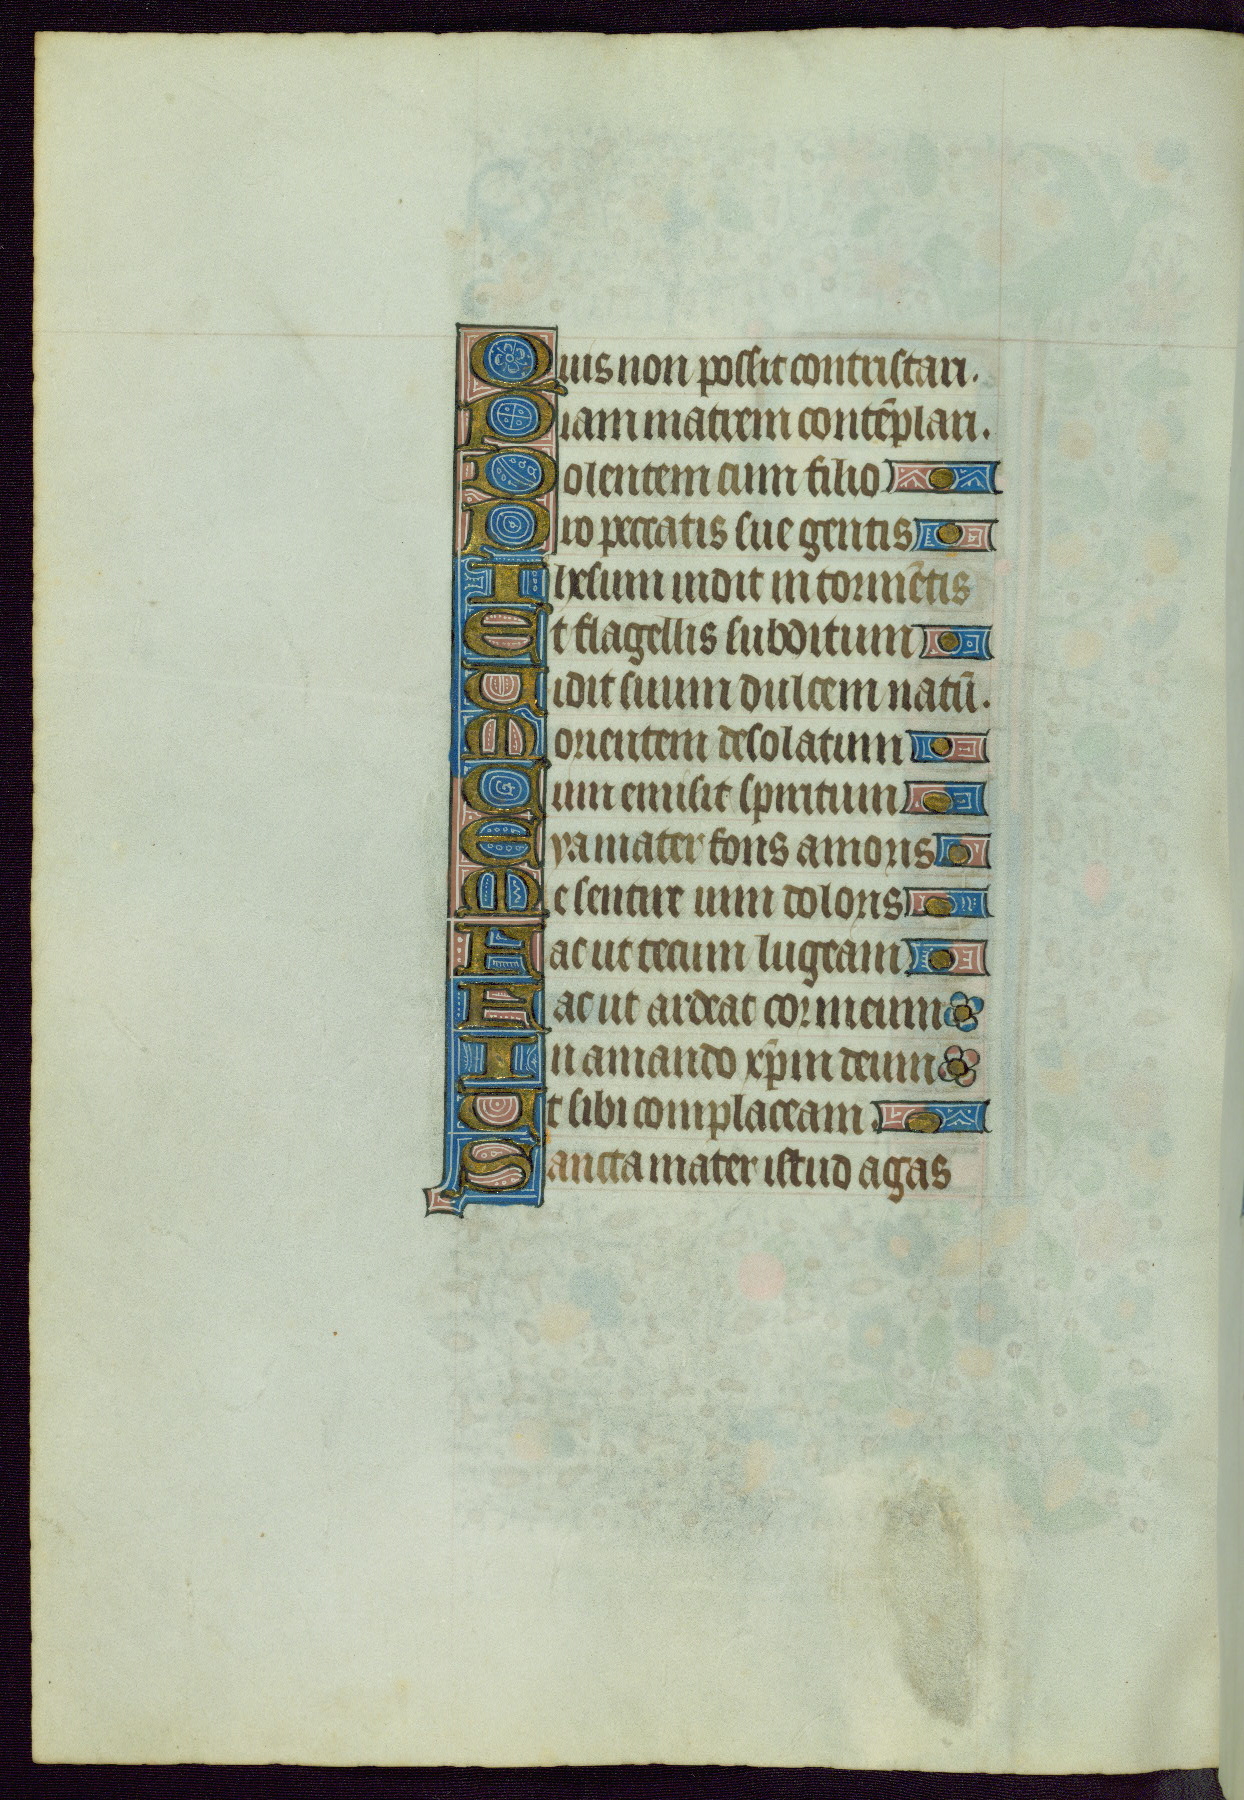 Quis non possit contristari.
Piam matrem contēplari.
Dolentem cum filio
Pro peccatis sue gentis
Ihesum uidit in tormētis
Et flagellis subditum
Uidit suum dulcem natū.
Morientem desolatum
Cum emisit spiritum
Eya mater fons amoris
Me sentire uim doloris
Fac ut tecum lugeam
Fac ut ardeat cor meum
In amando xp̄m deum
Ut sibi complaceam
Sancta mater istud agas